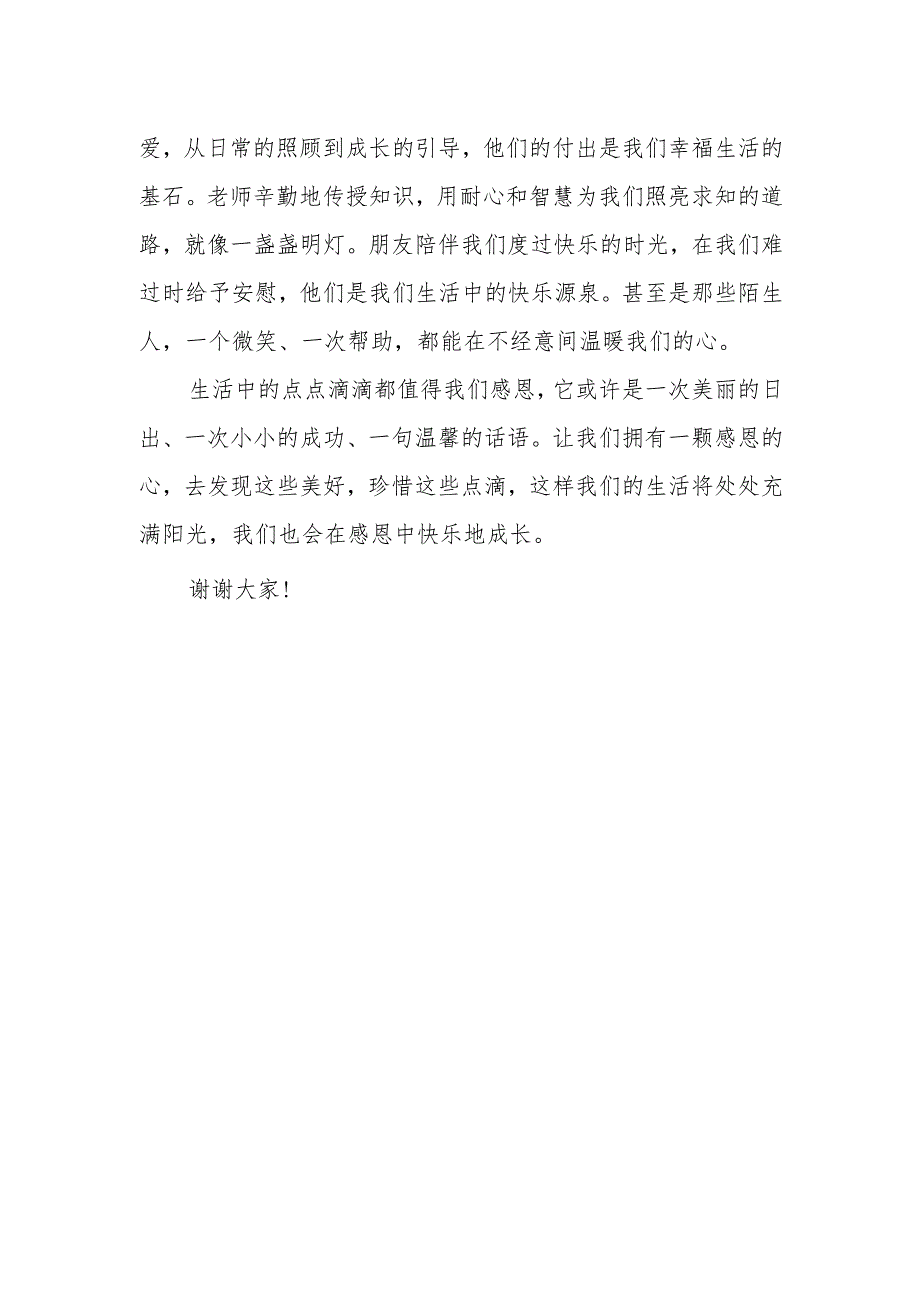 爱，从日常的照顾到成长的引导，他们的付出是我们幸福生活的
基石。老师辛勤地传授知识，用耐心和智慧为我们照亮求知的道
路，就像一盏盏明灯。朋友陪伴我们度过快乐的时光，在我们难
过时给予安慰，他们是我们生活中的快乐源泉。甚至是那些陌生
人，一个微笑、一次帮助，都能在不经意间温暖我们的心。
生活中的点点滴滴都值得我们感恩，它或许是一次美丽的日
出、一次小小的成功、一句温馨的话语。让我们拥有一颗感恩的
心，去发现这些美好，珍惜这些点滴，这样我们的生活将处处充
满阳光，我们也会在感恩中快乐地成长。
谢谢大家！